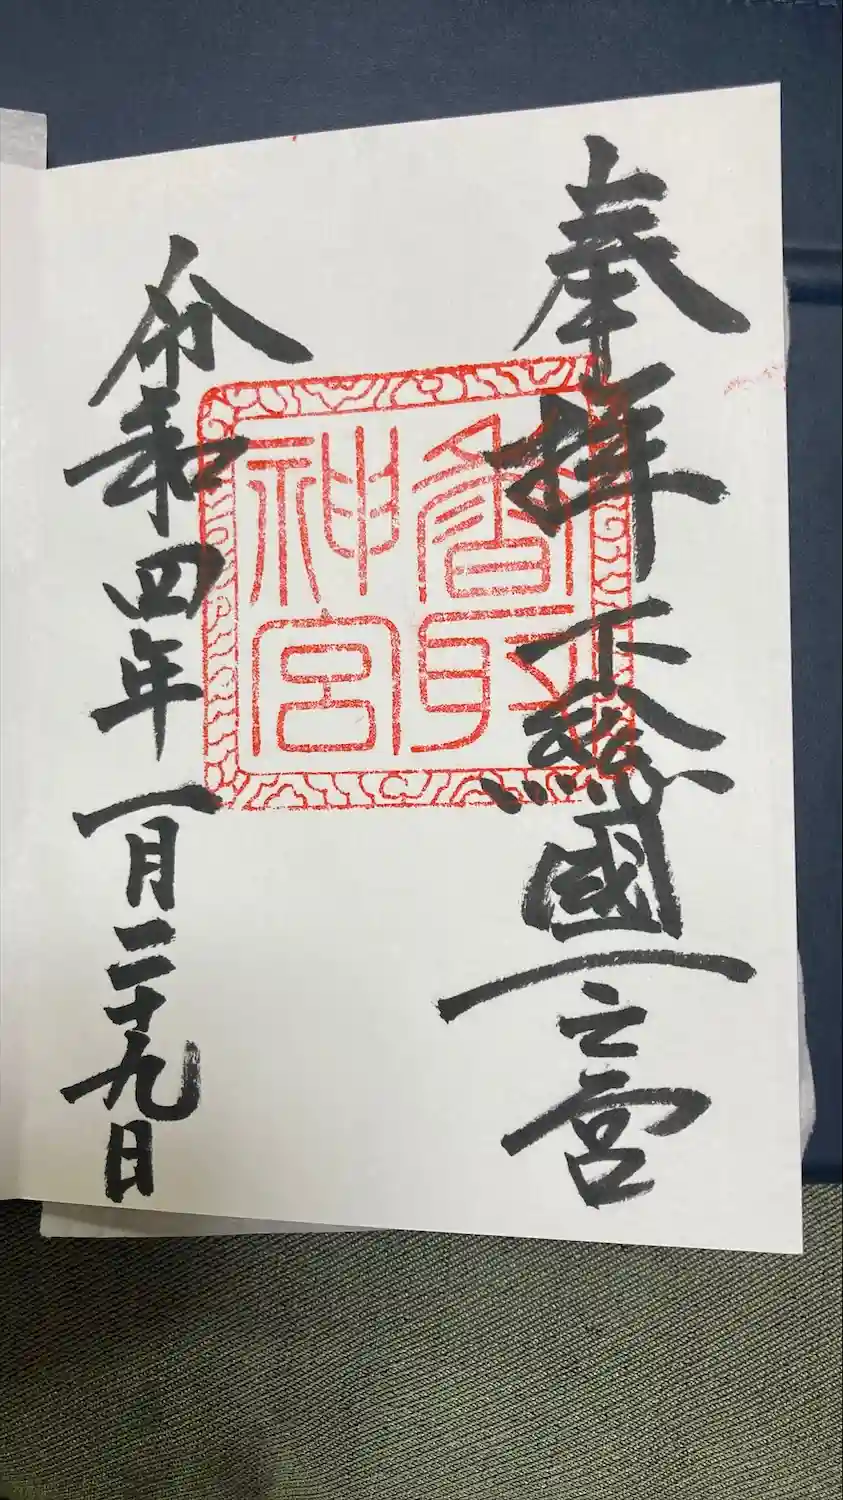 奉拝 下総國一之宮
香取
神宮
令和四年一月二十九日